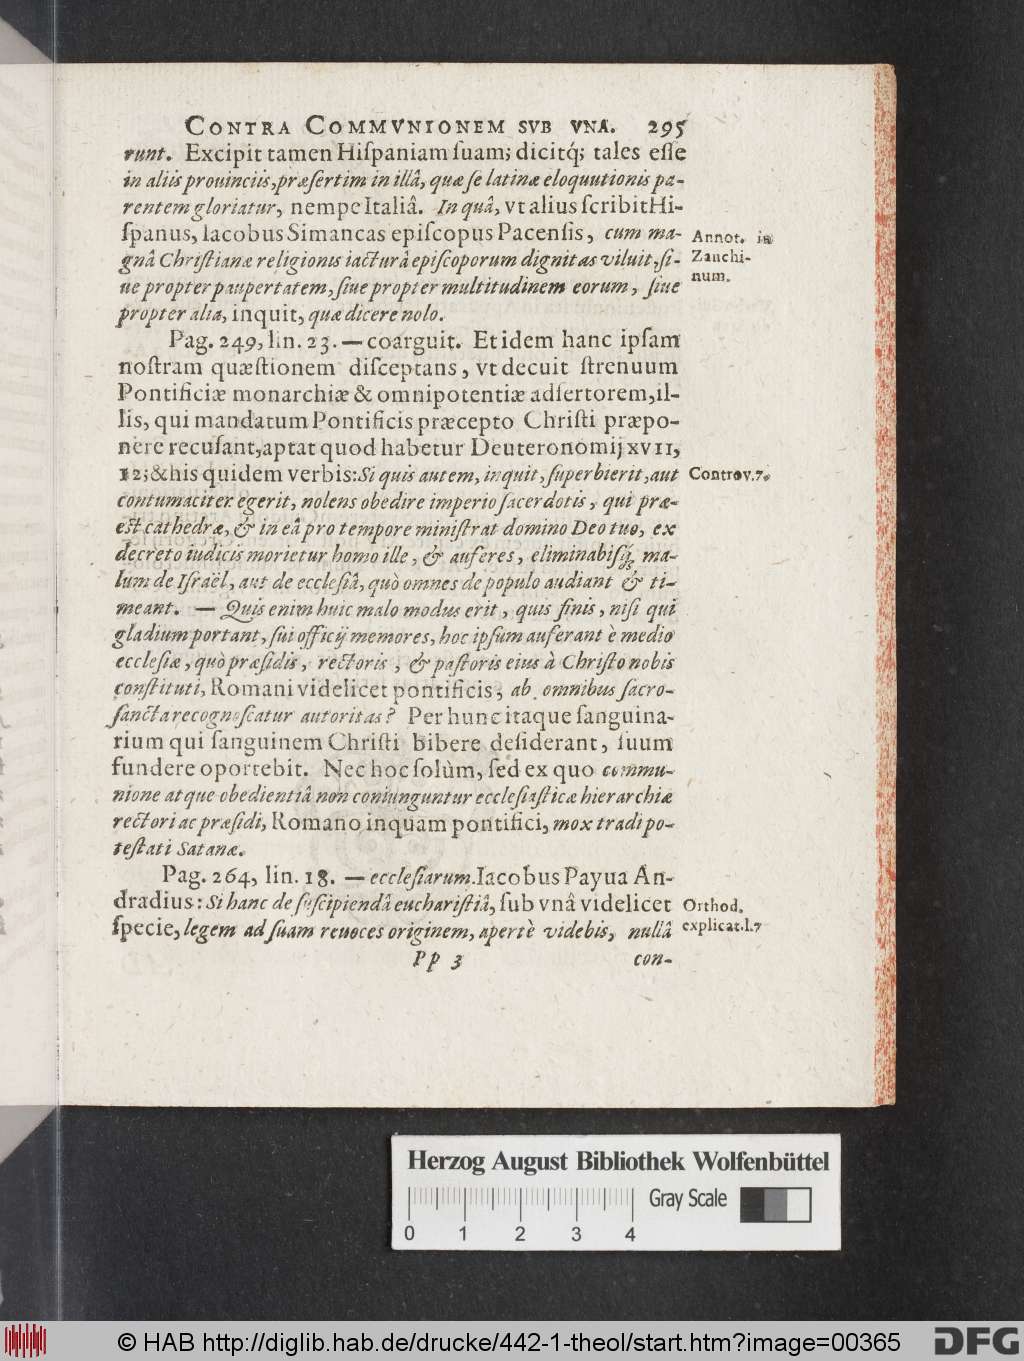 CONTRA COMMVNIONEM SVB VNA. 295
runt. Excipit tamen Hiſpaniam ſuam; dicitq́; tales eſſe
in aliis prouinciis, præſertim in illâ, quæ ſe latinæ eloquutionis pa-
rentem gloriatur, nempe Italiâ. In quâ, vt alius ſcribit Hi-
ſpanus, Iacobus Simancas epiſcopus Pacenſis, cum ma-
Annot. in
gnâ Chriſtianæ religionis iacturâ epiſcoporum dignitas viluit, ſi-
Zanchi-
ue propter paupertatem, ſiue propter multitudinem eorum, ſiue
num.
propter alia, inquit, quæ dicere nolo.
Pag. 249, lin. 23. — coarguit. Et idem hanc ipſam
noſtram quæſtionem diſceptans, vt decuit ſtrenuum
Pontificiæ monarchiæ & omnipotentiæ adſertorem, il-
lis, qui mandatum Pontificis præcepto Chriſti præpo-
nere recuſant, aptat quod habetur Deuteronomij XVII,
12; & his quidem verbis: Si quis autem, inquit, ſuperbierit, aut
Controv. 7.
contumaciter egerit, nolens obedire imperio ſacerdotis, qui præ-
eſt cathedræ, & in eâ pro tempore miniſtrat domino Deo tuo, ex
decreto iudicis morietur homo ille, & auferes, eliminabiſq́; ma-
lum de Iſraël, aut de eccleſiâ, quò omnes de populo audiant & ti-
meant. — Quis enim huic malo modus erit, quis finis, niſi qui
gladium portant, ſui officij memores, hoc ipſum auferant è medio
eccleſiæ, quò præſidis, rectoris, & paſtoris eius à Chriſto nobis
conſtituti, Romani videlicet pontificis, ab omnibus ſacro-
ſancta recognoſcatur autoritas? Per hunc itaque ſanguina-
rium qui ſanguinem Chriſti bibere deſiderant, ſuum
fundere oportebit. Nec hoc ſolùm, ſed ex quo commu-
nione atque obedientiâ non coniunguntur eccleſiaſticæ hierarchiæ
rectori ac præſidi, Romano inquam pontifici, mox tradi po-
teſtati Satanæ.
Pag. 264, lin. 18. — eccleſiarum. Iacobus Payua An-
dradius: Si hanc de ſuſcipiendâ euchariſtiâ, ſub vnâ videlicet
Orthod.
ſpecie, legem ad ſuam reuoces originem, apertè videbis, nullâ
explicat. l. 7
Pp 3 con-
Herzog August Bibliothek Wolfenbüttel
Gray Scale
0 1 2 3 4
© HAB http://diglib.hab.de/drucke/442-1-theol/start.htm?image=00365
DFG